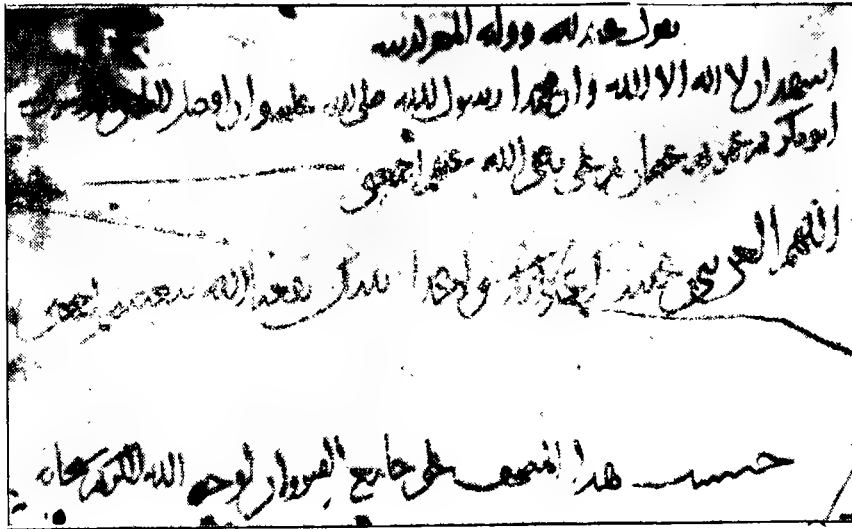 يقول عبد الله ووليه المعز لدينه
اشهد ان لا اله الا الله وان محمدا رسول الله صلى الله عليه وان افضل الناس بعد
ابو بكر ثم عمر ثم عثمن ثم علي رضي الله عنهم اجمعين
اللهم العن بني عبيد نبيك نفعنا الله ببغضهم اجمعين
حبست هذا المصحف على جامع القيروان لوجه الله الكريم سبحانه